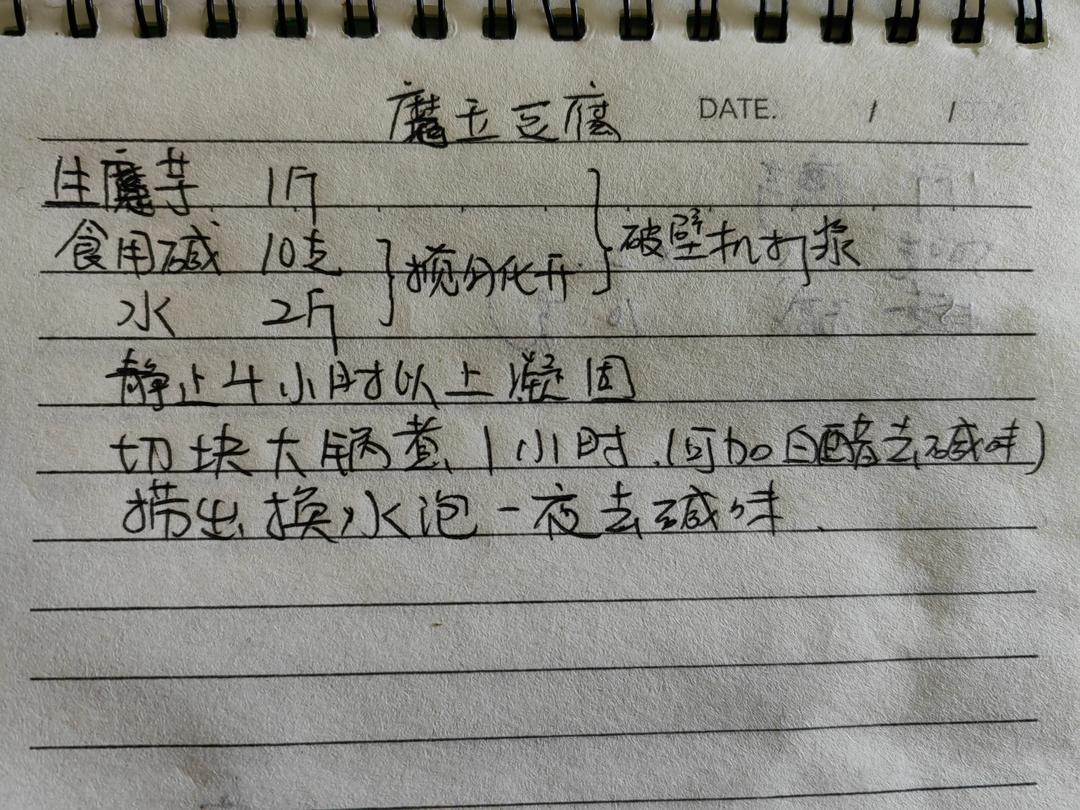 魔玉豆腐 DATE. / /
生魔芋 1斤
食用碱 10克
水 2斤
}搅匀化开
}破壁机打浆
静止4小时以上凝固
切块大锅煮1小时.(可加白醋去碱味)
捞出换水泡一夜去碱味.